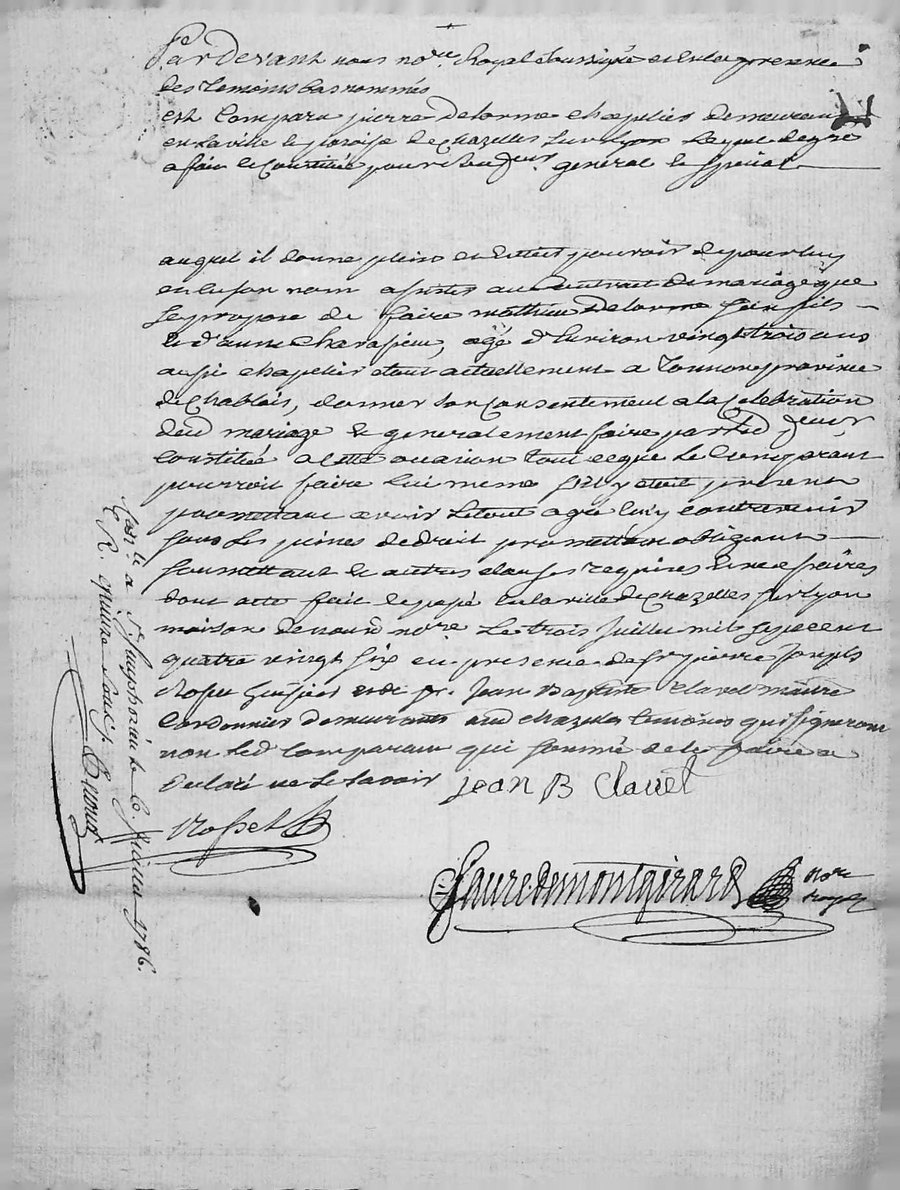 Par devant nous no.re Royal soussigné et en la presence
des temoins bas nommés
est comparu pierre delorme chapelier demeurant
en la ville & paroisse de chazelles sur lyon lequel de gré
a fait & constitué pour procureur général & special
auquel il donne plein et entier pouvoir de pour luy
et en son nom assister au contrat de mariage que
se propose de faire mathieu Delorme son fils
& d'anne charassieu, agé d'environ vingt trois ans
aussi chapelier etant actuellement a Tonnon province
de Chablais, donner son consentement a la celebration
dud mariage & generalement faire par led procur
constitué a cette occasion tout ce que le comparant
pourroit faire lui meme s'il y etoit present
promettant avoir le tout a gré sans y contrevenir
sous les peines de droit promettant obligeant
soumettant & autres clauses requises & necessaires
dont acte fait & passé en la ville de chazelles sur lyon
maison de nousd no.re le trois Juillet mil sept cent
quatre vingt six en presence de sr pierre Joseph
Rosset huissier et de sr. Jean Baptiste Clavel maitre
cordonnier demeurants aud chazelles temoins qui signeront
non led comparant qui sommé de le faire a
declaré ne le savoir
Jean B Clavel
Rosset
Faure demontgirard no.re
royal
Con.lé a St. Simphorien le Co. Juillet 1786.
R. quinze sous